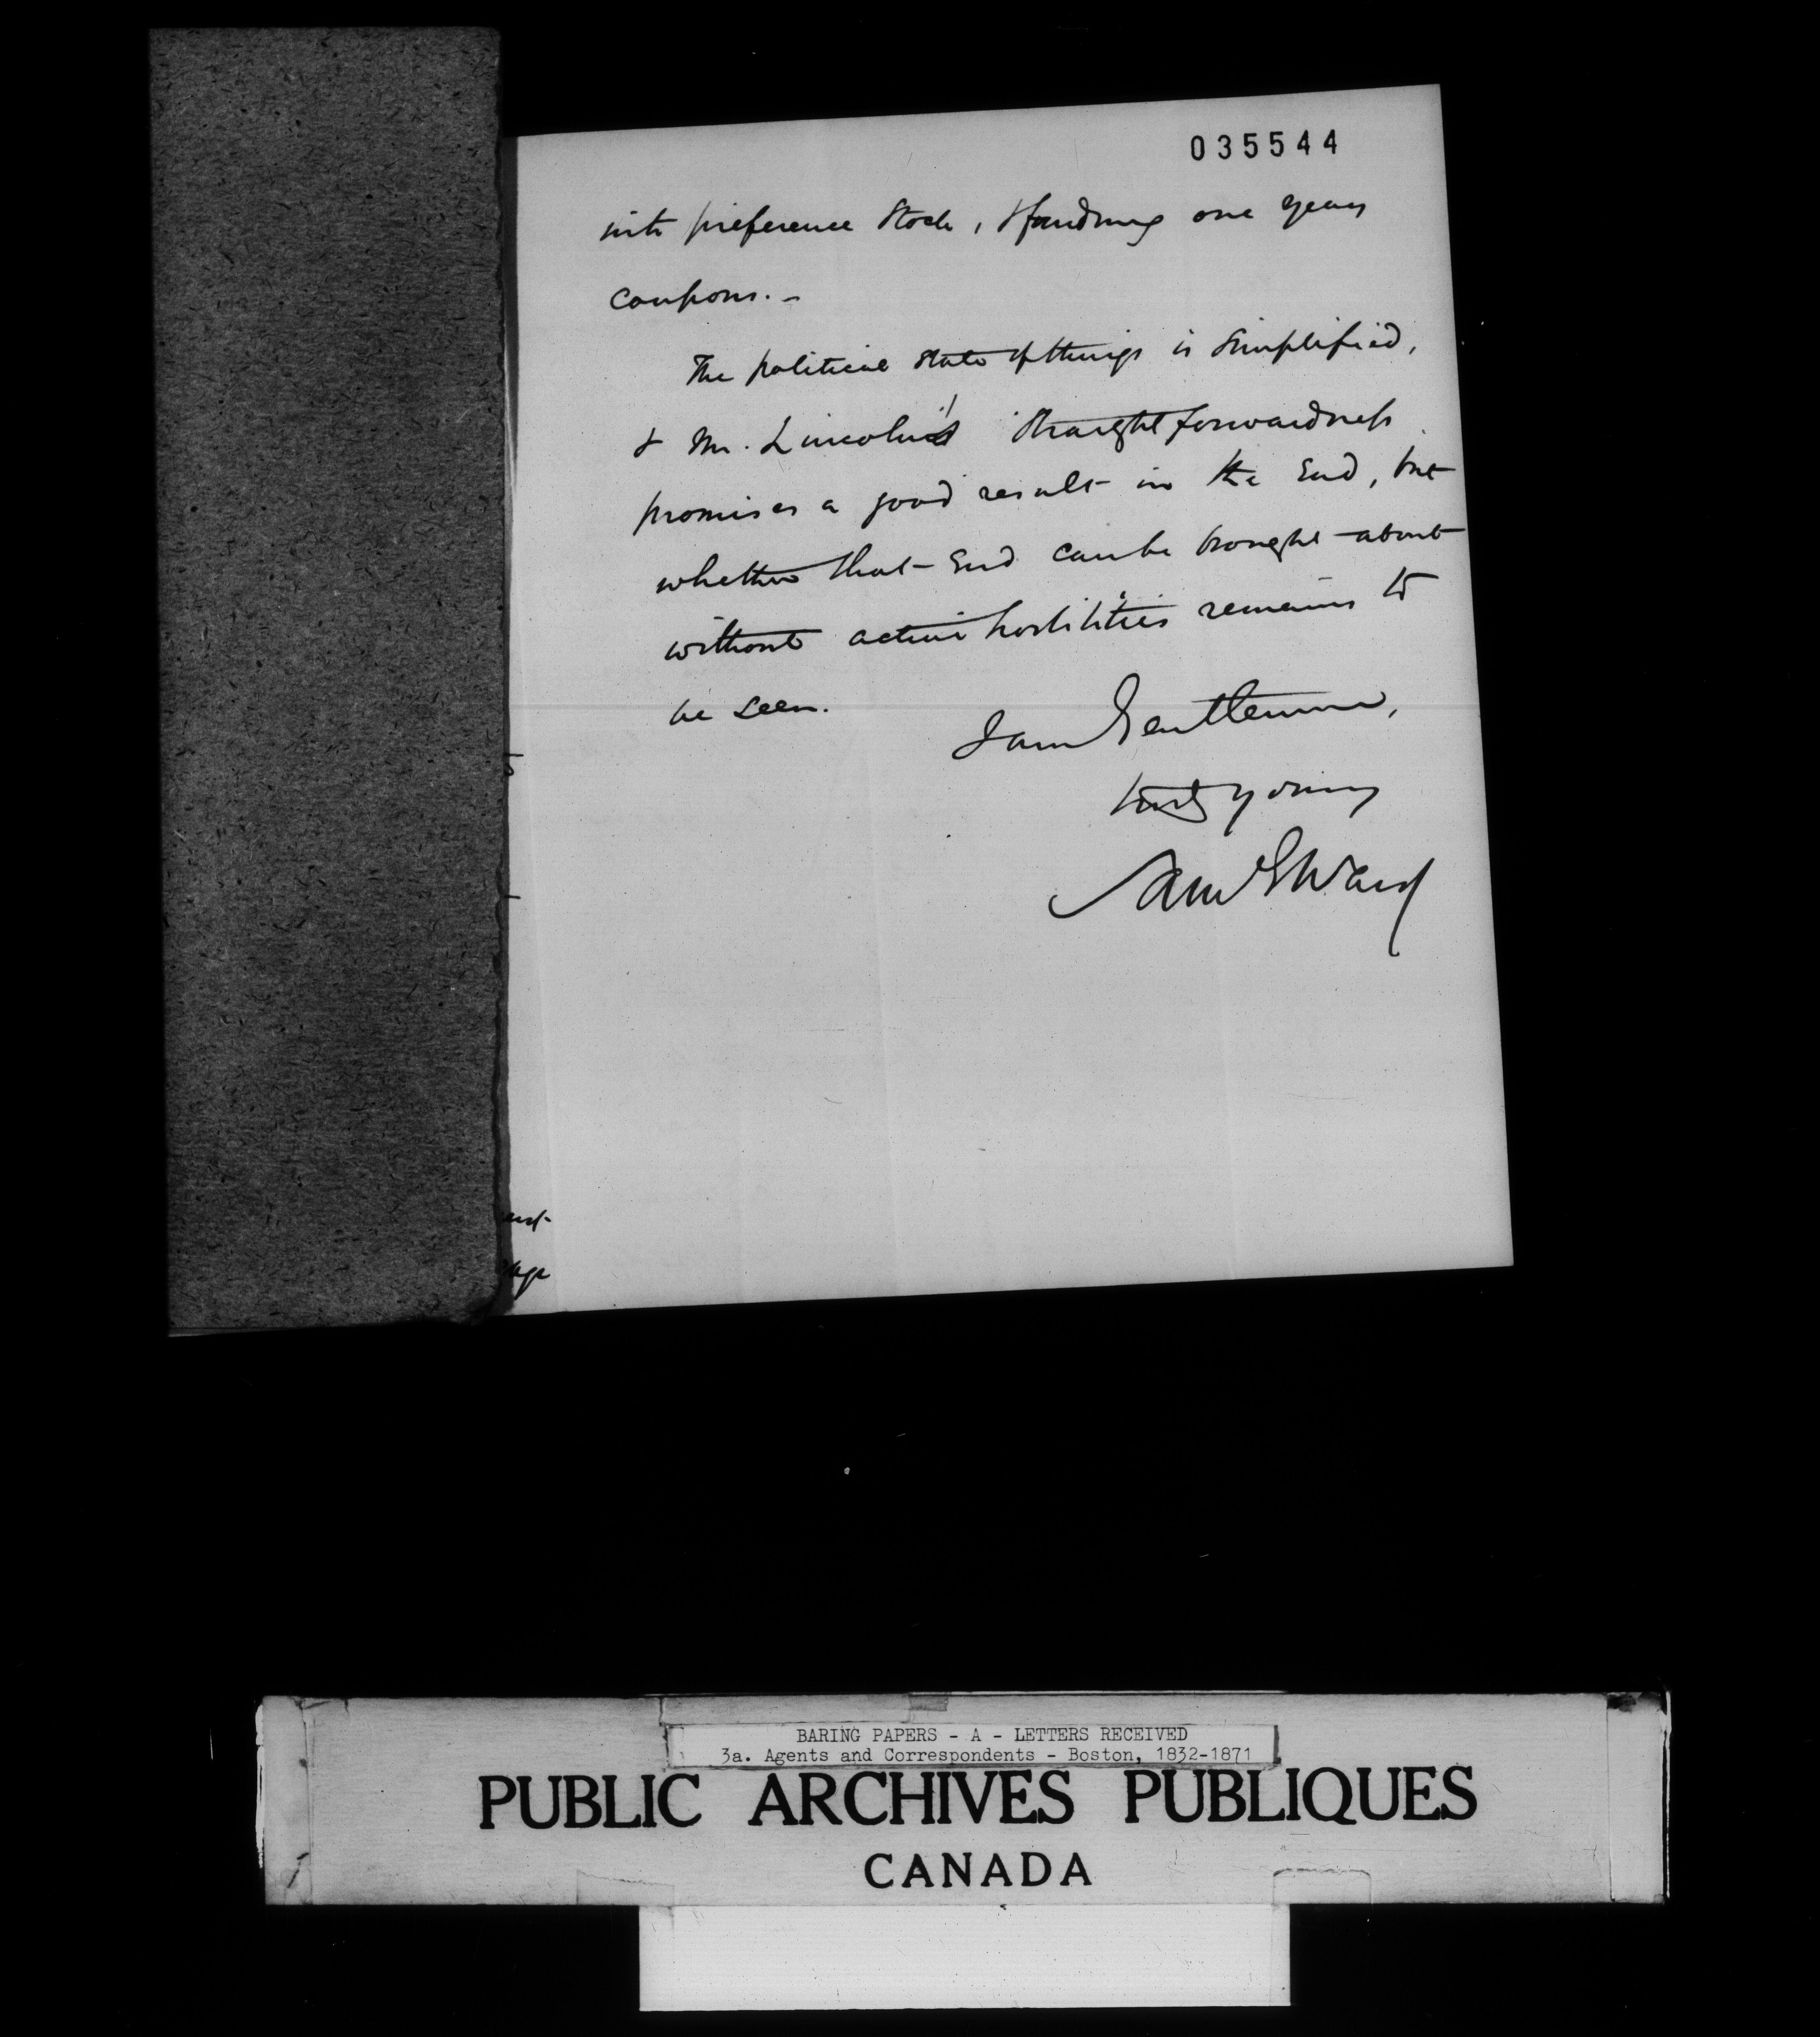 035544
into preference Stock, & funding one years
coupons. -
The political state of things is simplified,
& Mr. Lincoln's straightforwardness
promises a good result in the End, but
whether that End can be brought about
without active hostilities remains to
be seen.
I am Gentlemen,
truly yours
Sam G Ward
BARING PAPERS - A - LETTERS RECEIVED
3a. Agents and Correspondents - Boston, 1832-1871
PUBLIC ARCHIVES PUBLIQUES
CANADA